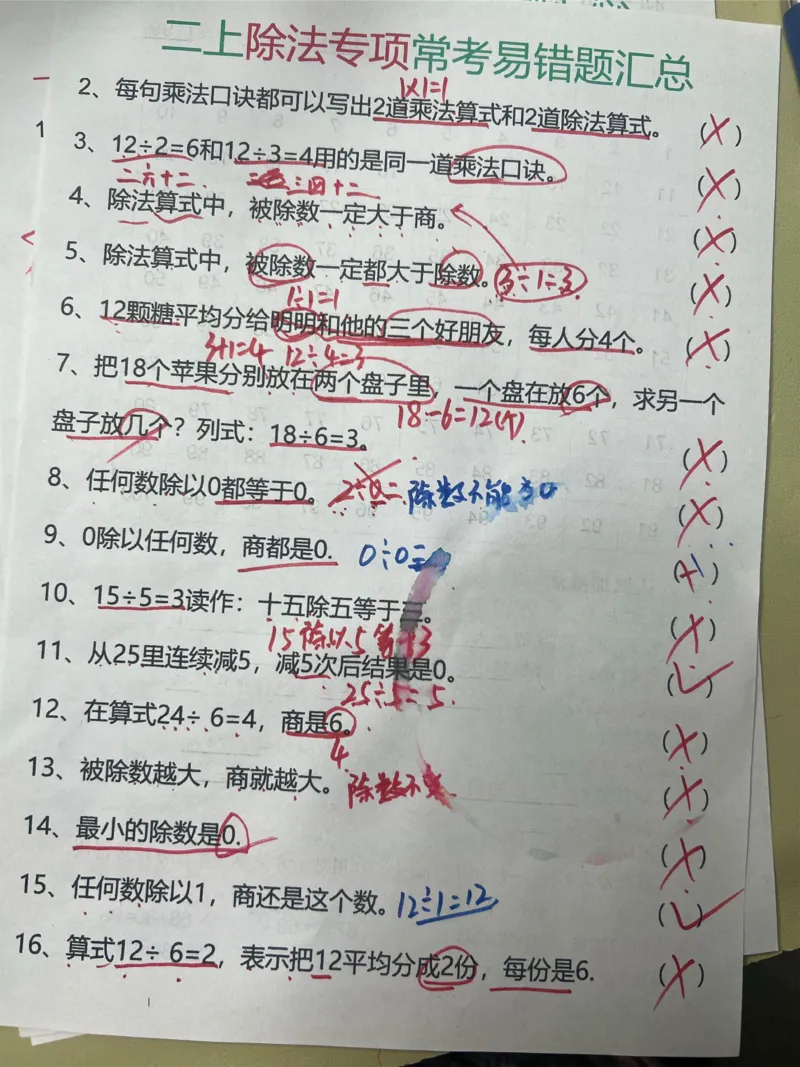 二上除法专项常考易错题汇总
1×1=1
2、每句乘法口诀都可以写出2道乘法算式和2道除法算式。 (×)
3、12÷2=6和12÷3=4用的是同一道乘法口诀。 (×)
二六十二 三四十二
4、除法算式中，被除数一定大于商。 (×)
5、除法算式中，被除数一定都大于除数。 3÷1=3 (×)
1÷1=1
6、12颗糖平均分给明明和他的三个好朋友，每人分4个。 (×)
3+1=4 12÷4=3
7、把18个苹果分别放在两个盘子里，一个盘在放6个，求另一个
18-6=12(个)
盘子放几个？列式：18÷6=3。 (×)
8、任何数除以0都等于0。 2÷0= 除数不能为0 (×)
9、0除以任何数，商都是0. 0÷0= (×)
10、15÷5=3读作：十五除五等于三。 (×)
15除以5等于3
11、从25里连续减5，减5次后结果是0。 (✓)
25÷5=5.
12、在算式24÷ 6=4，商是6。 (×)
4
13、被除数越大，商就越大。 除数不变 (×)
14、最小的除数是0. (×)
15、任何数除以1，商还是这个数。 12÷1=12 (✓)
16、算式12÷ 6=2，表示把12平均分成2份，每份是6. (×)